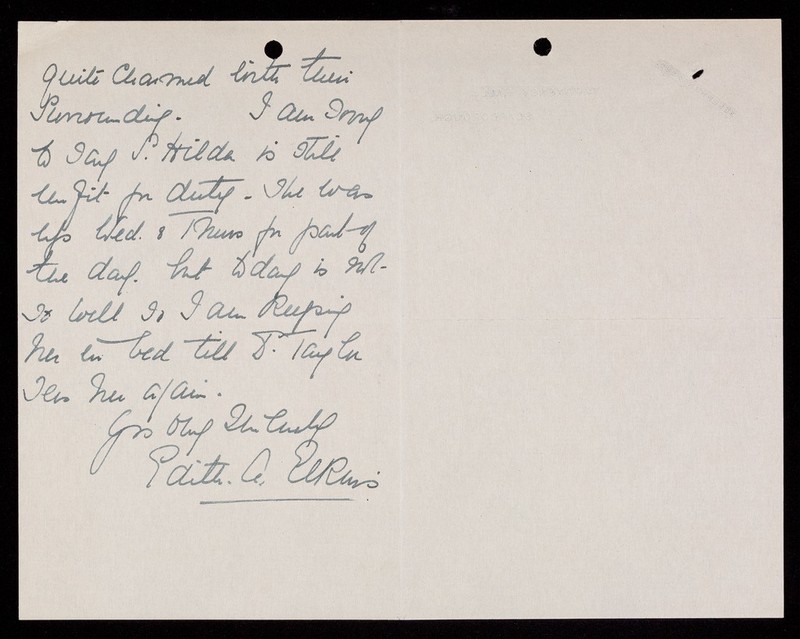 quite charmed with their
surrounding. I am sorry
to say Sr. Hilda is still
unfit for duty - She was
up Wed. & Thurs for part of
the day. but today is not
so well so I am keeping
her in bed till Dr. Taylor
sees her again.
Yrs very sincerely
Edith. A. Elkins